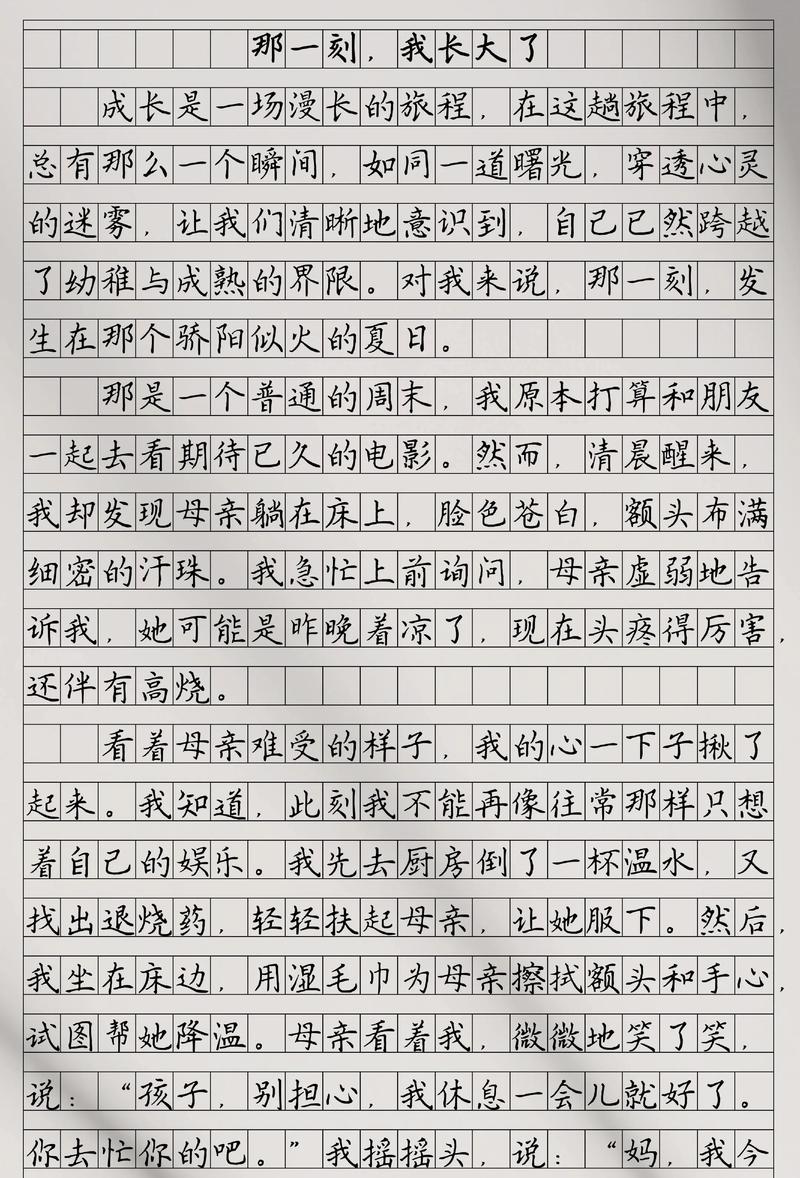 那一刻，我长大了
成长是一场漫长的旅程，在这趟旅程中，
总有那么一个瞬间，如同一道曙光，穿透心灵
的迷雾，让我们清晰地意识到，自己已然跨越
了幼稚与成熟的界限。对我来说，那一刻，发
生在那个骄阳似火的夏日。
那是一个普通的周末，我原本打算和朋友
一起去看期待已久的电影。然而，清晨醒来，
我却发现母亲躺在床上，脸色苍白，额头布满
细密的汗珠。我急忙上前询问，母亲虚弱地告
诉我，她可能是昨晚着凉了，现在头疼得厉害，
还伴有高烧。
看着母亲难受的样子，我的心一下子揪了
起来。我知道，此刻我不能再像往常那样只想
着自己的娱乐。我先去厨房倒了一杯温水，又
找出退烧药，轻轻扶起母亲，让她服下。然后，
我坐在床边，用湿毛巾为母亲擦拭额头和手心，
试图帮她降温。母亲看着我，微微地笑了笑，
说：“孩子，别担心，我休息一会儿就好了。
你去忙你的吧。”我摇摇头，说：“妈，我今